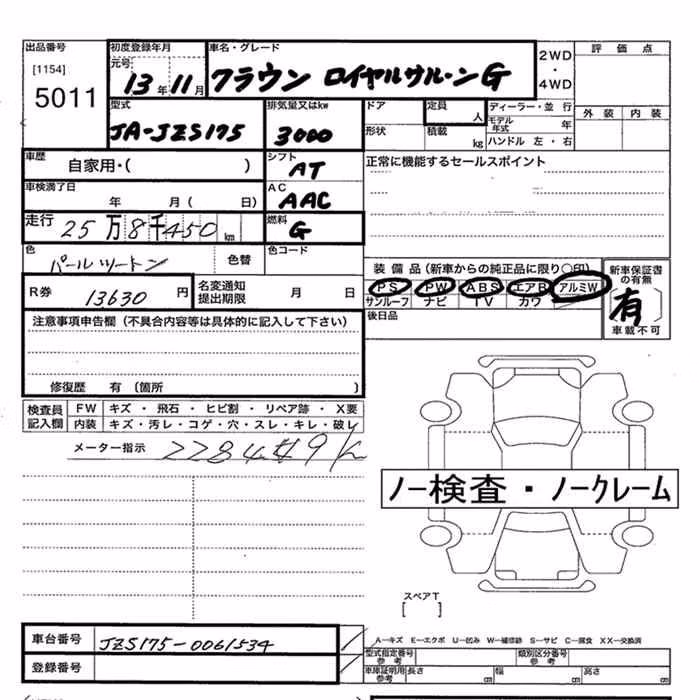 出品番号
[1154]
5011
初度登録年月
元号
13年11月
車名・グレード
クラウン ロイヤルサルーンG
2WD・4WD
評価点
外装 内装
型式
JA-JZS175
排気量又はkw
3000
ドア
形状
定員 人
積載 kg
ディーラー・並行
モデル年式 年
ハンドル 左・右
車歴
自家用・( )
シフト
AT
正常に機能するセールスポイント
車検満了日
年 月( 日)
AC
AAC
走行
25万8千450km
燃料
G
色
パールツートン
色替
色コード
装備品(新車からの純正品に限り○印)
PS PW ABS エアB アルミW
サンルーフ ナビ TV カワ
新車保証書の有無
有
車載不可
R券
13630円
名変通知提出期限
月 日
後日品
注意事項申告欄(不具合内容等は具体的に記入して下さい)
修復歴 有(箇所 )
検査員記入欄
FW キズ・飛石・ヒビ割・リペア跡・X要
内装 キズ・汚レ・コゲ・穴・スレ・キレ・破レ
メーター指示
ノー検査・ノークレーム
スペアT
[ ]
車台番号
JZS175-0061534
登録番号
A―キズ E―エクボ U―凹み W―補修跡 S―サビ C―腐食 XX―交換済
型式指定番号 参考
類別区分番号 参考
車庫証明用 参考
長さ cm
幅 cm
高さ cm